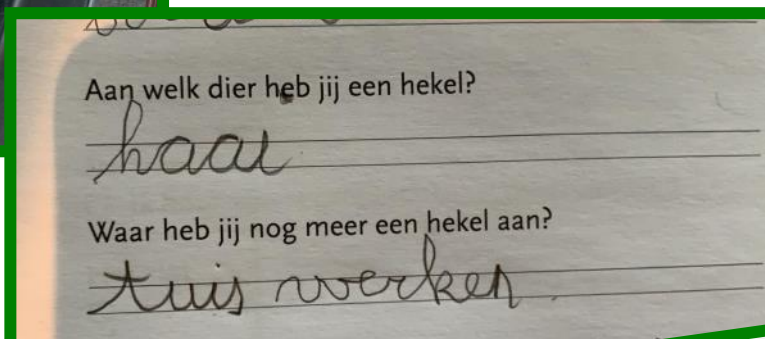 Aan welk dier heb jij een hekel?
haai
Waar heb jij nog meer een hekel aan?
tuis werken